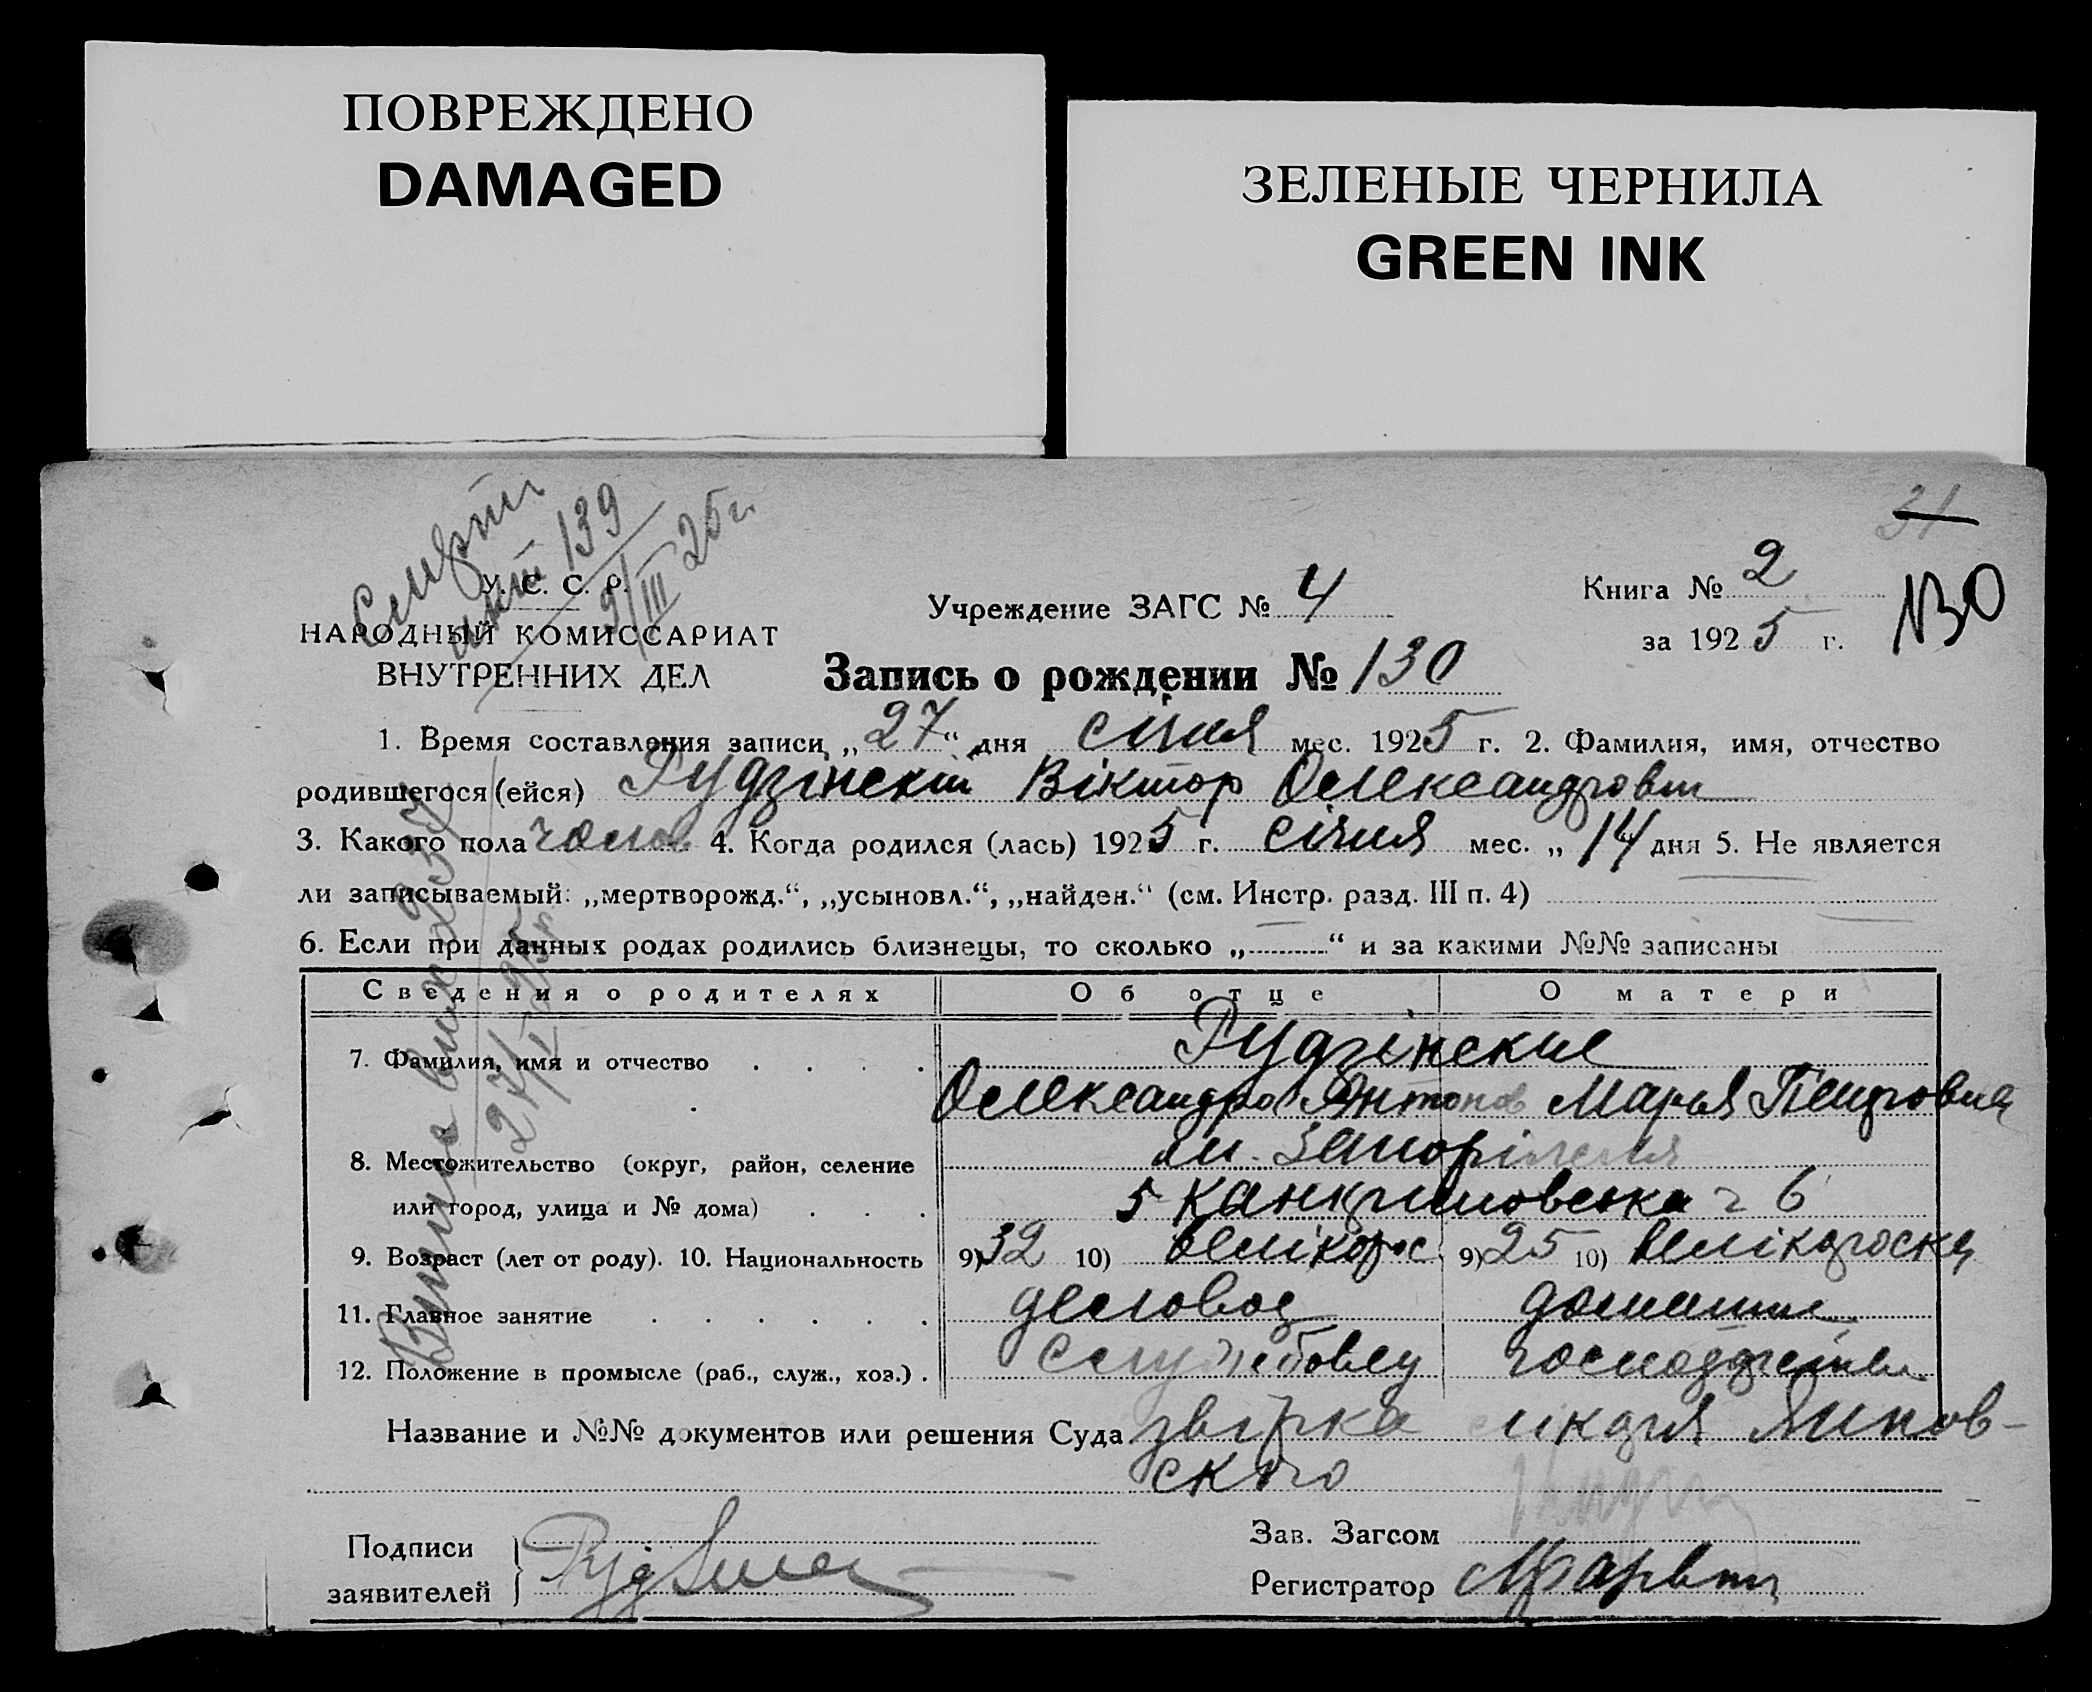 ПОВРЕЖДЕНО
DAMAGED
ЗЕЛЕНЫЕ ЧЕРНИЛА
GREEN INK
31
Смерти
акт 139
9/III 25 г.
У. С. С. Р.
НАРОДНЫЙ КОМИССАРИАТ
ВНУТРЕННИХ ДЕЛ
Учреждение ЗАГС № 4
Книга № 2
за 1925 г.
130
Запись о рождении № 130
1. Время составления записи „27“ дня січня мес. 1925 г. 2. Фамилия, имя, отчество
родившегося (ейся) Рудзінскій Віктор Олександрович
3. Какого пола чолов 4. Когда родился (лась) 1925 г. січня мес. „14 дня 5. Не является
ли записываемый: „мертворожд.“, „усыновл.“, „найден.“ (см. Инстр. разд. III п. 4)
6. Если при данных родах родились близнецы, то сколько „ “ и за какими №№ записаны
Сведения о родителях Об отце О матери
7. Фамилия, имя и отчество Рудзінские
Олександров Антонов Марья Петровна
8. Местожительство (округ, район, селение м. Запоріжжя
или город, улица и № дома) 6
9. Возраст (лет от роду). 10. Национальность 9) 32 10) велікорос 9) 25 10) велікороска
11. Главное занятие діловод домашнє
12. Положение в промысле (раб., служ., хоз.) службовец господарство
Название и №№ документов или решения Суда звірка лікаря Янков-
ского
Подписи
заявителей
Зав. Загсом
Регистратор